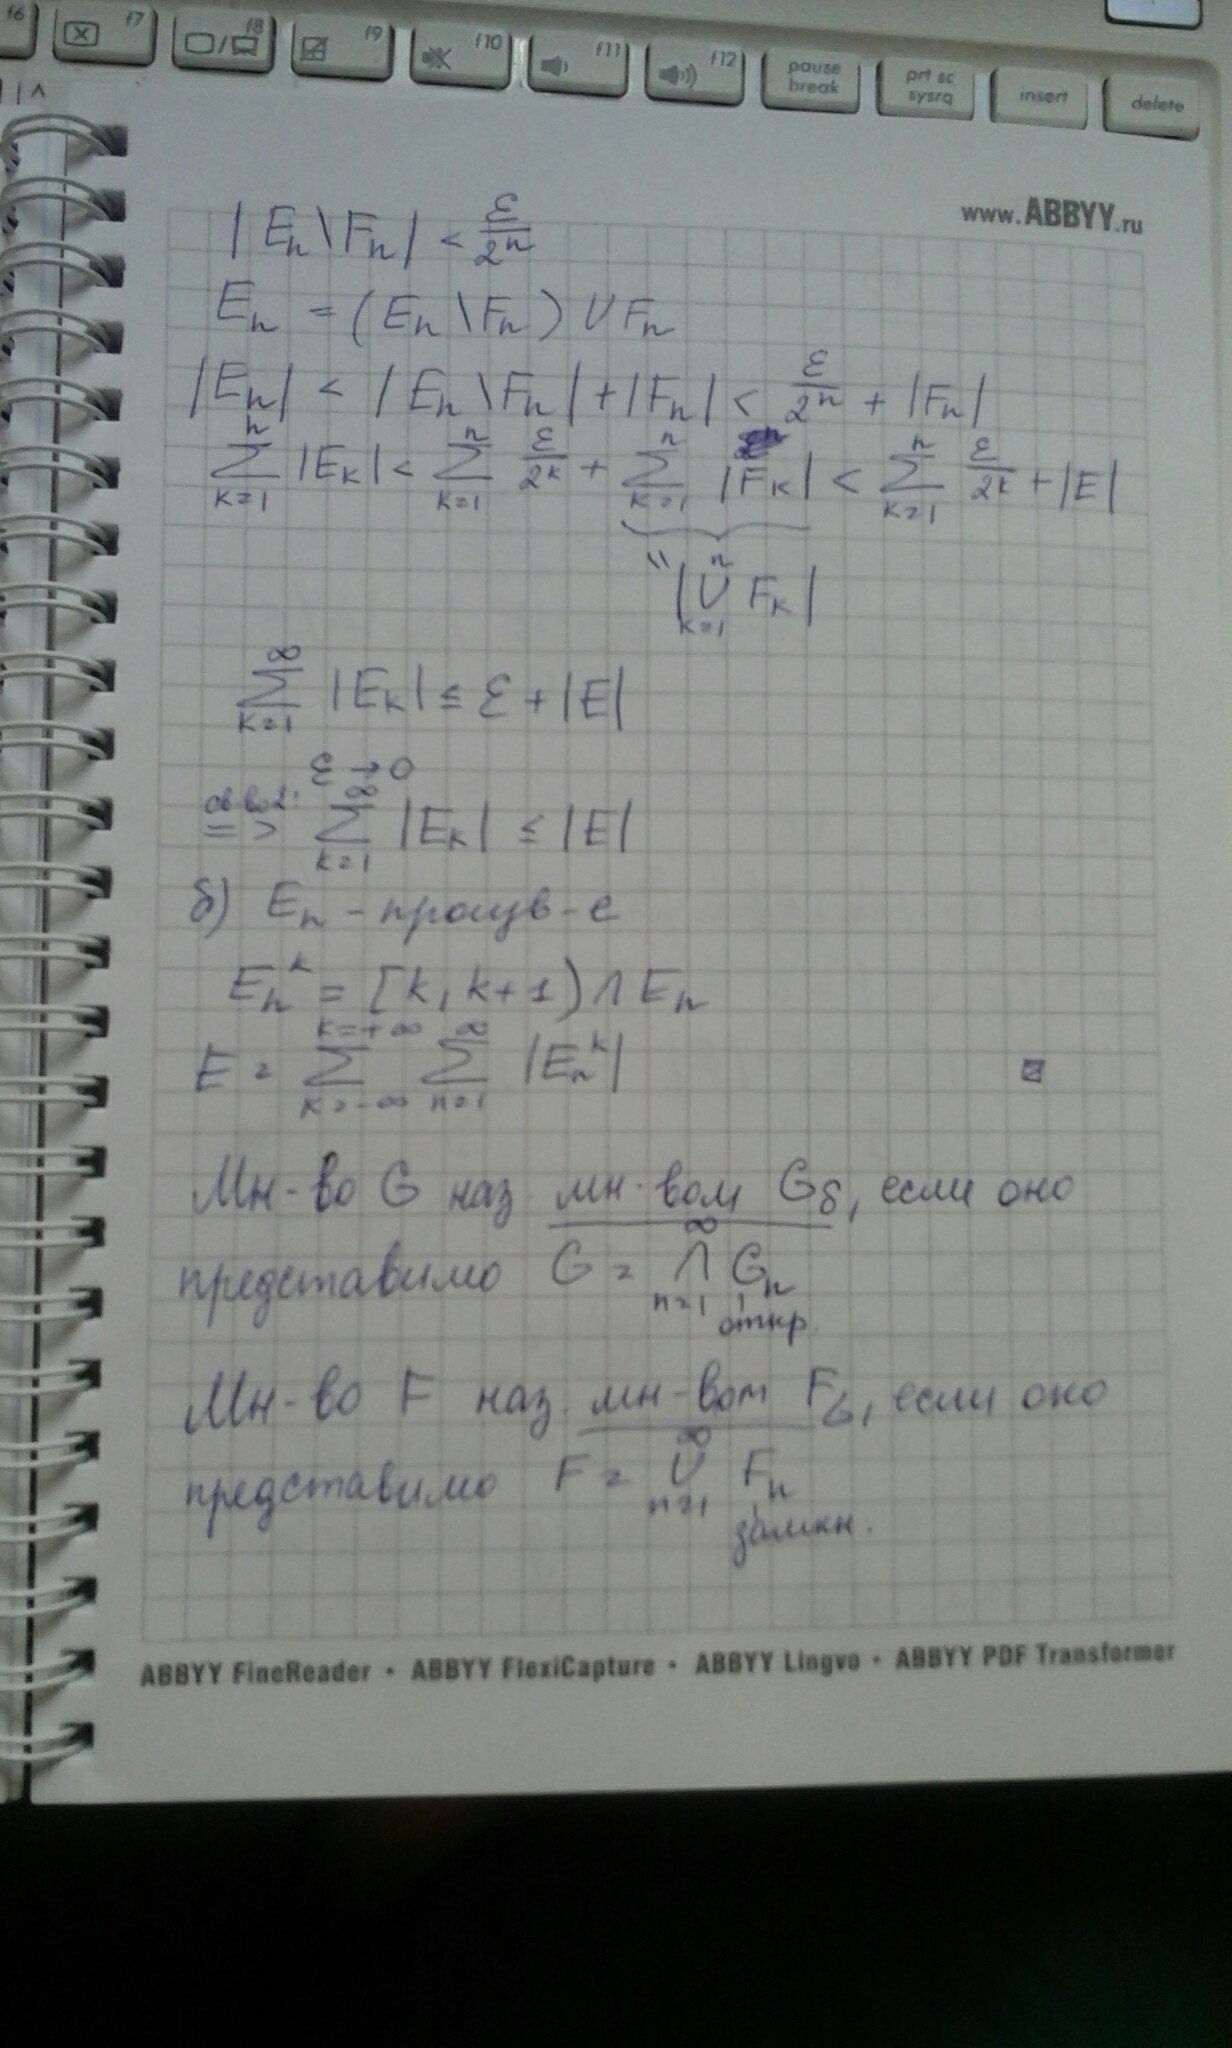 f6 f7 f8 f9 f10 f11 f12 pause break prt sc sysrq insert delete
www.ABBYY.ru
|Eₙ \ Fₙ| < ε/2ⁿ
Eₙ = (Eₙ \ Fₙ) ∪ Fₙ
|Eₙ| < |Eₙ \ Fₙ| + |Fₙ| < ε/2ⁿ + |Fₙ|
∑ₖ₌₁ⁿ |Eₖ| < ∑ₖ₌₁ⁿ ε/2ᵏ + ∑ₖ₌₁ⁿ |Fₖ| < ∑ₖ₌₁ⁿ ε/2ᵏ + |E|
" |∪ₖ₌₁ⁿ Fₖ|
∑ₖ₌₁^∞ |Eₖ| ≤ ε + |E|
ε → 0
=> ∑ₖ₌₁^∞ |Eₖ| ≤ |E|
б) Eₙ -
Eₙᵏ = [k, k+1) ∩ Eₙ
E = ∑_{k=-∞}^{k=+∞} ∑ₙ₌₁^∞ |Eₙᵏ|
Мн-во G наз. мн-вом Gδ, если оно
представимо G = ∩ₙ₌₁^∞ Gₙ
откр.
Мн-во F наз. мн-вом Fσ, если оно
представимо F = ∪ₙ₌₁^∞ Fₙ
замкн.
ABBYY FineReader • ABBYY FlexiCapture • ABBYY Lingvo • ABBYY PDF Transformer